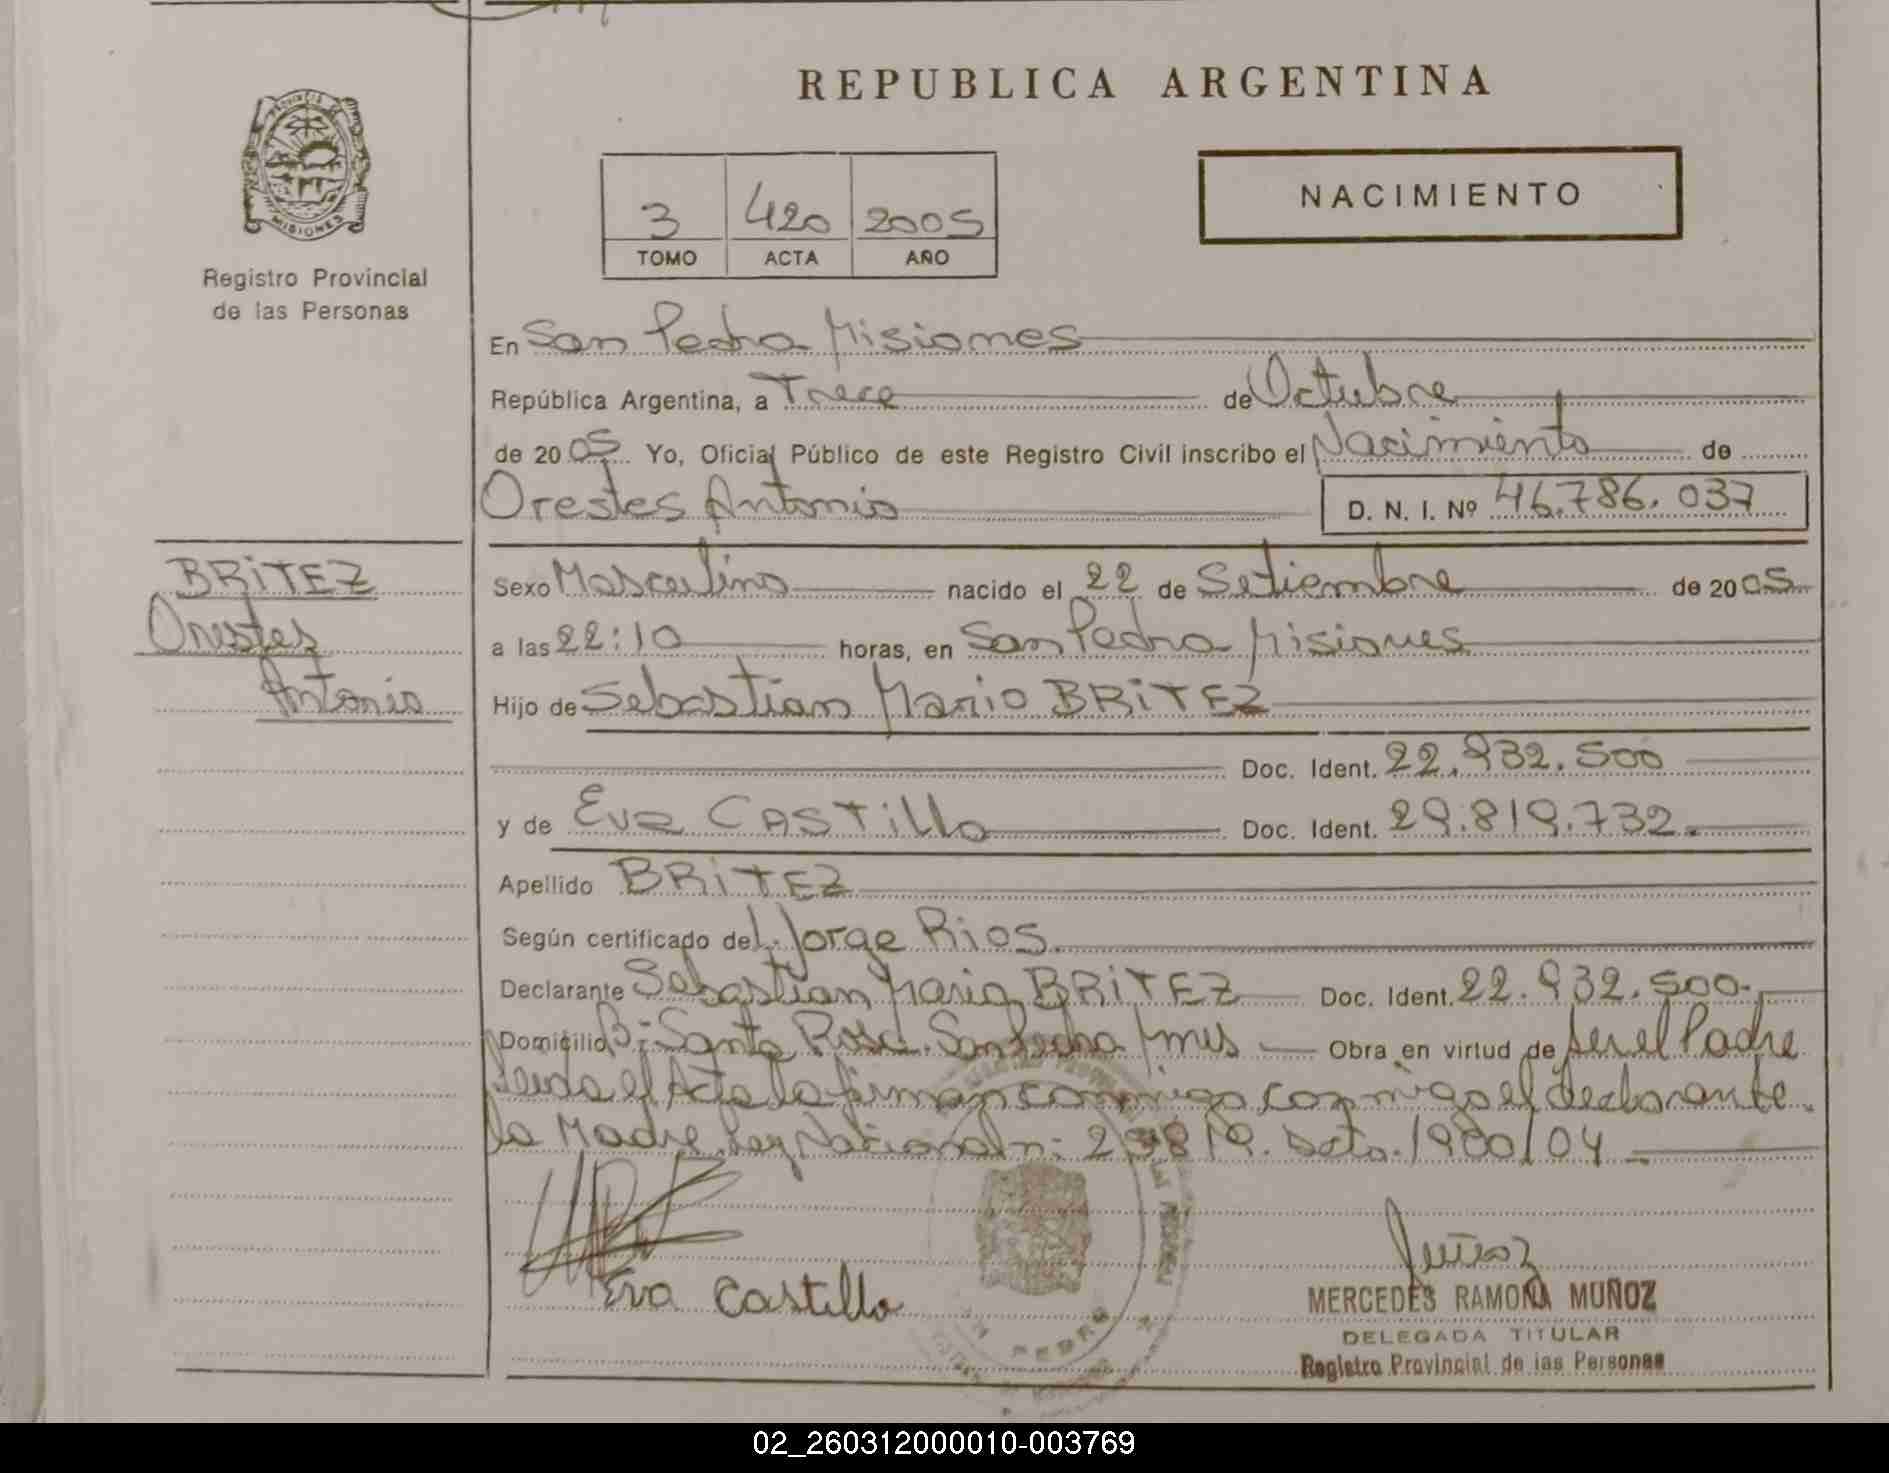 REPUBLICA ARGENTINA
PROVINCIA DE
MISIONES
Registro Provincial
de las Personas
3 420 2005
TOMO ACTA AÑO
NACIMIENTO
En San Pedro Misiones
República Argentina, a Trece de Octubre
de 2005 Yo, Oficial Público de este Registro Civil inscribo el Nacimiento de
Orestes Antonio D. N. I. Nº 46.786.037
BRiTEZ
Orestes
Antonio
Sexo Masculino nacido el 22 de Setiembre de 2005
a las 22:10 horas, en San Pedro Misiones
Hijo de Sebastian Mario BRiTEZ
Doc. Ident. 22.932.500
y de Eva CASTillo Doc. Ident. 29.819.732.
Apellido BRiTEZ
Según certificado del Jorge Rios.
Declarante Sebastian Mario BRiTEZ Doc. Ident. 22.932.500.
Domicilio B: Santa Rosa. San Pedro Mnes Obra en virtud de ser el Padre
Leida el Acta la firman conmigo el declarante.
la Madre. Ley Nacional n: 25819. Dcto. 1900/04
Eva Castillo
Muñoz
MERCEDES RAMONA MUÑOZ
DELEGADA TITULAR
Registro Provincial de las Personas
PEDRO
02_260312000010-003769